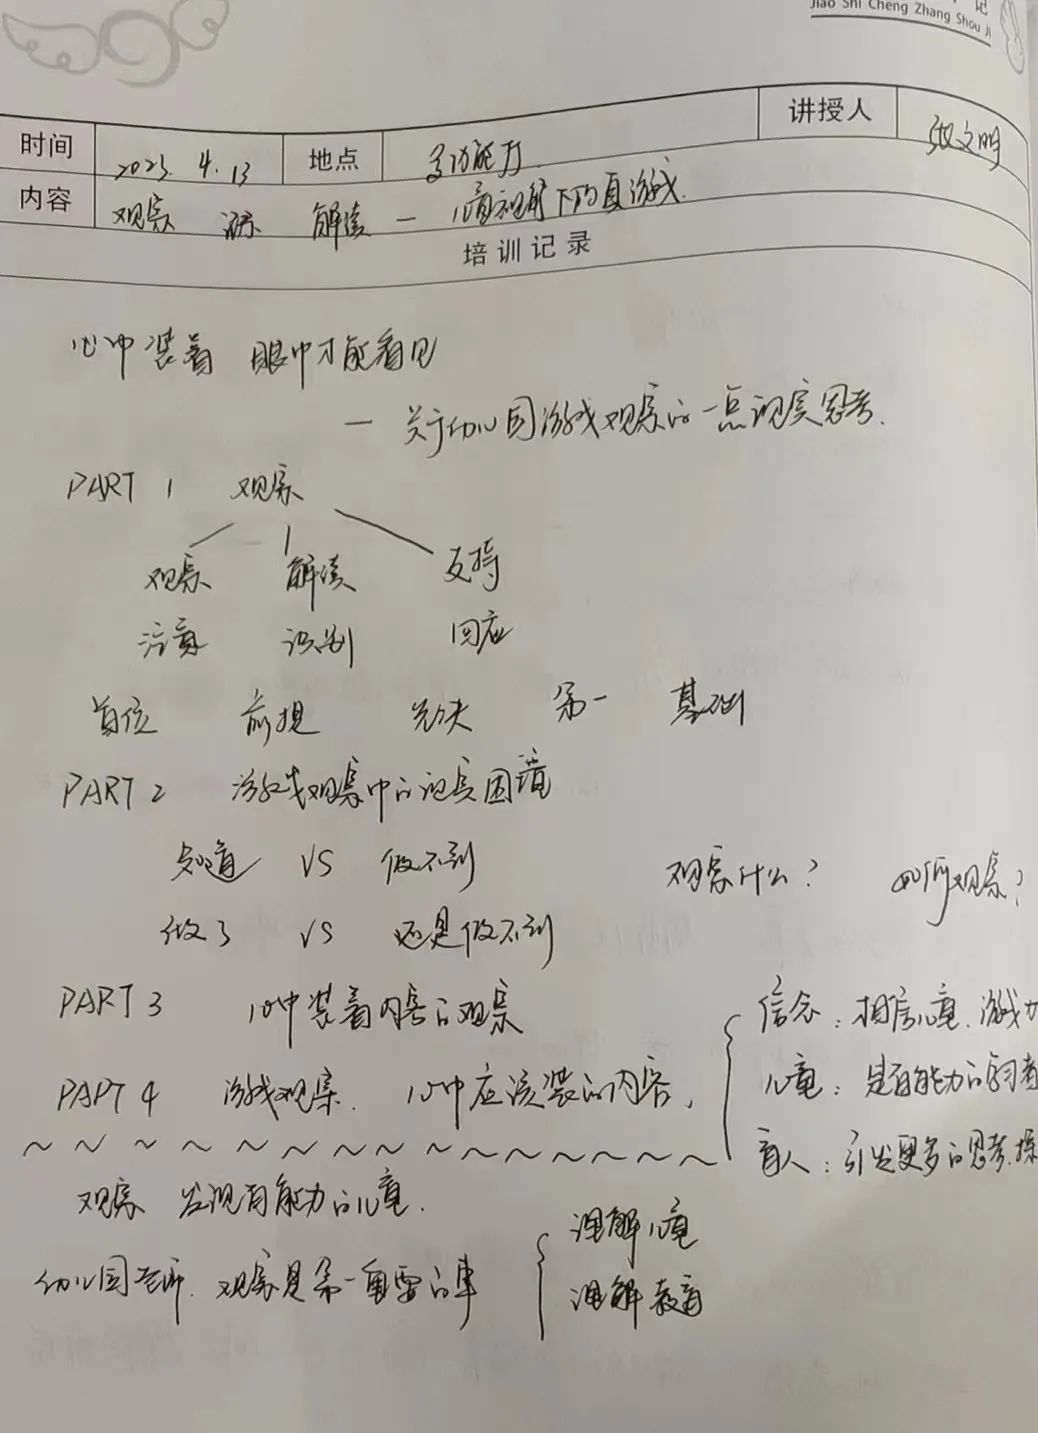 记
Jiao Shi Cheng Zhang Shou Ji
时间 2023. 4. 13 地点 多功能厅 讲授人 张文明
内容 观察 解读 — 儿童视角下的真游戏.
培训记录
心中装着 眼中才能看见
— 关于幼儿园游戏观察的一点现实思考.
PART 1 观察
观察 解读 支持
注意 识别 回应
首位 前提 先决 第一 基础
PART 2 游戏观察中的现实困境
知道 VS 做不到 观察什么? 如何观察?
做了 VS 还是做不到
PART 3 心中装着内容的观察
PART 4 游戏观察. 心中应该装的内容,
信念: 相信儿童. 游戏力
儿童: 是有能力的学习者
育人: 引发更多的思考.探
观察 发现有能力的儿童.
幼儿园老师. 观察是第一重要的事
理解儿童
理解教育